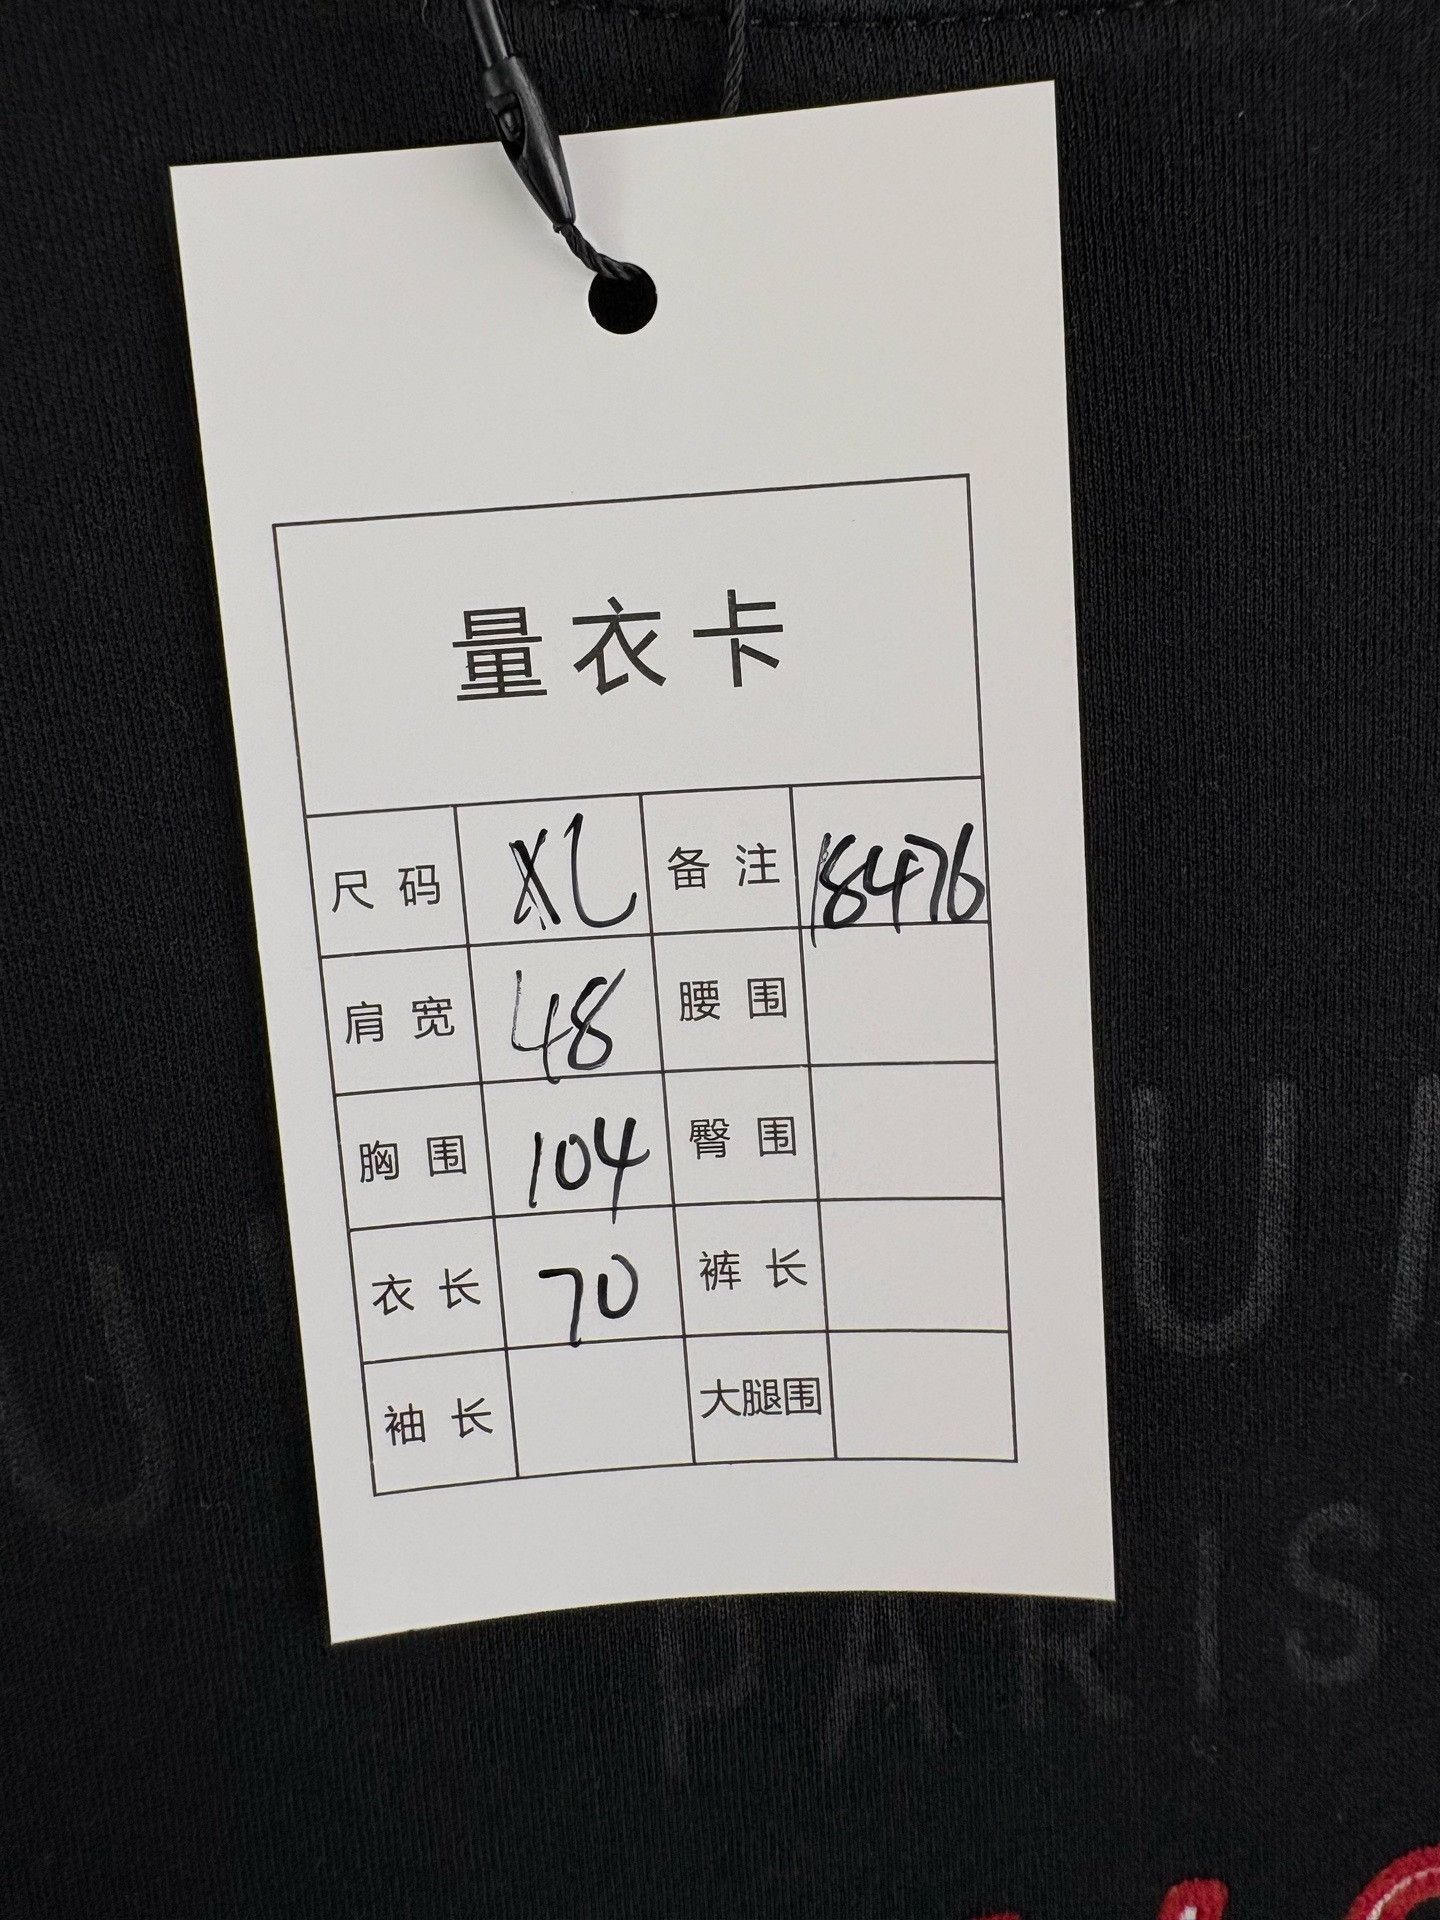 量衣卡
尺码 XL 备注 18476
肩宽 48 腰围
胸围 104 臀围
衣长 70 裤长
袖长 大腿围
PARIS